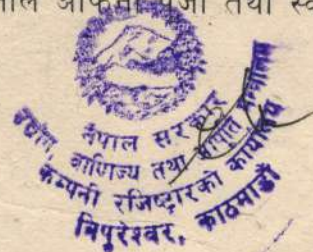 तथा
नेपाल सरकार
उद्योग, वाणिज्य तथा आपूर्ति मन्त्रालय
कम्पनी रजिष्ट्रारको कार्यालय
त्रिपुरेश्वर, काठमाडौं